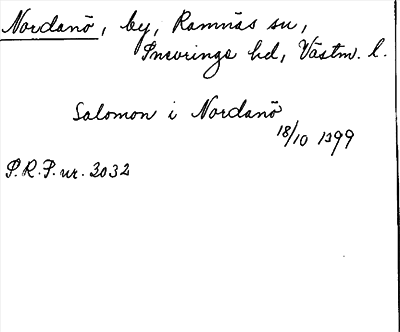 Nordanö, by, Ramnäs sn,
Snevringe hd, Västm. l.
Salomon i Nordanö
18/10 1399
P.R.P. nr. 3032